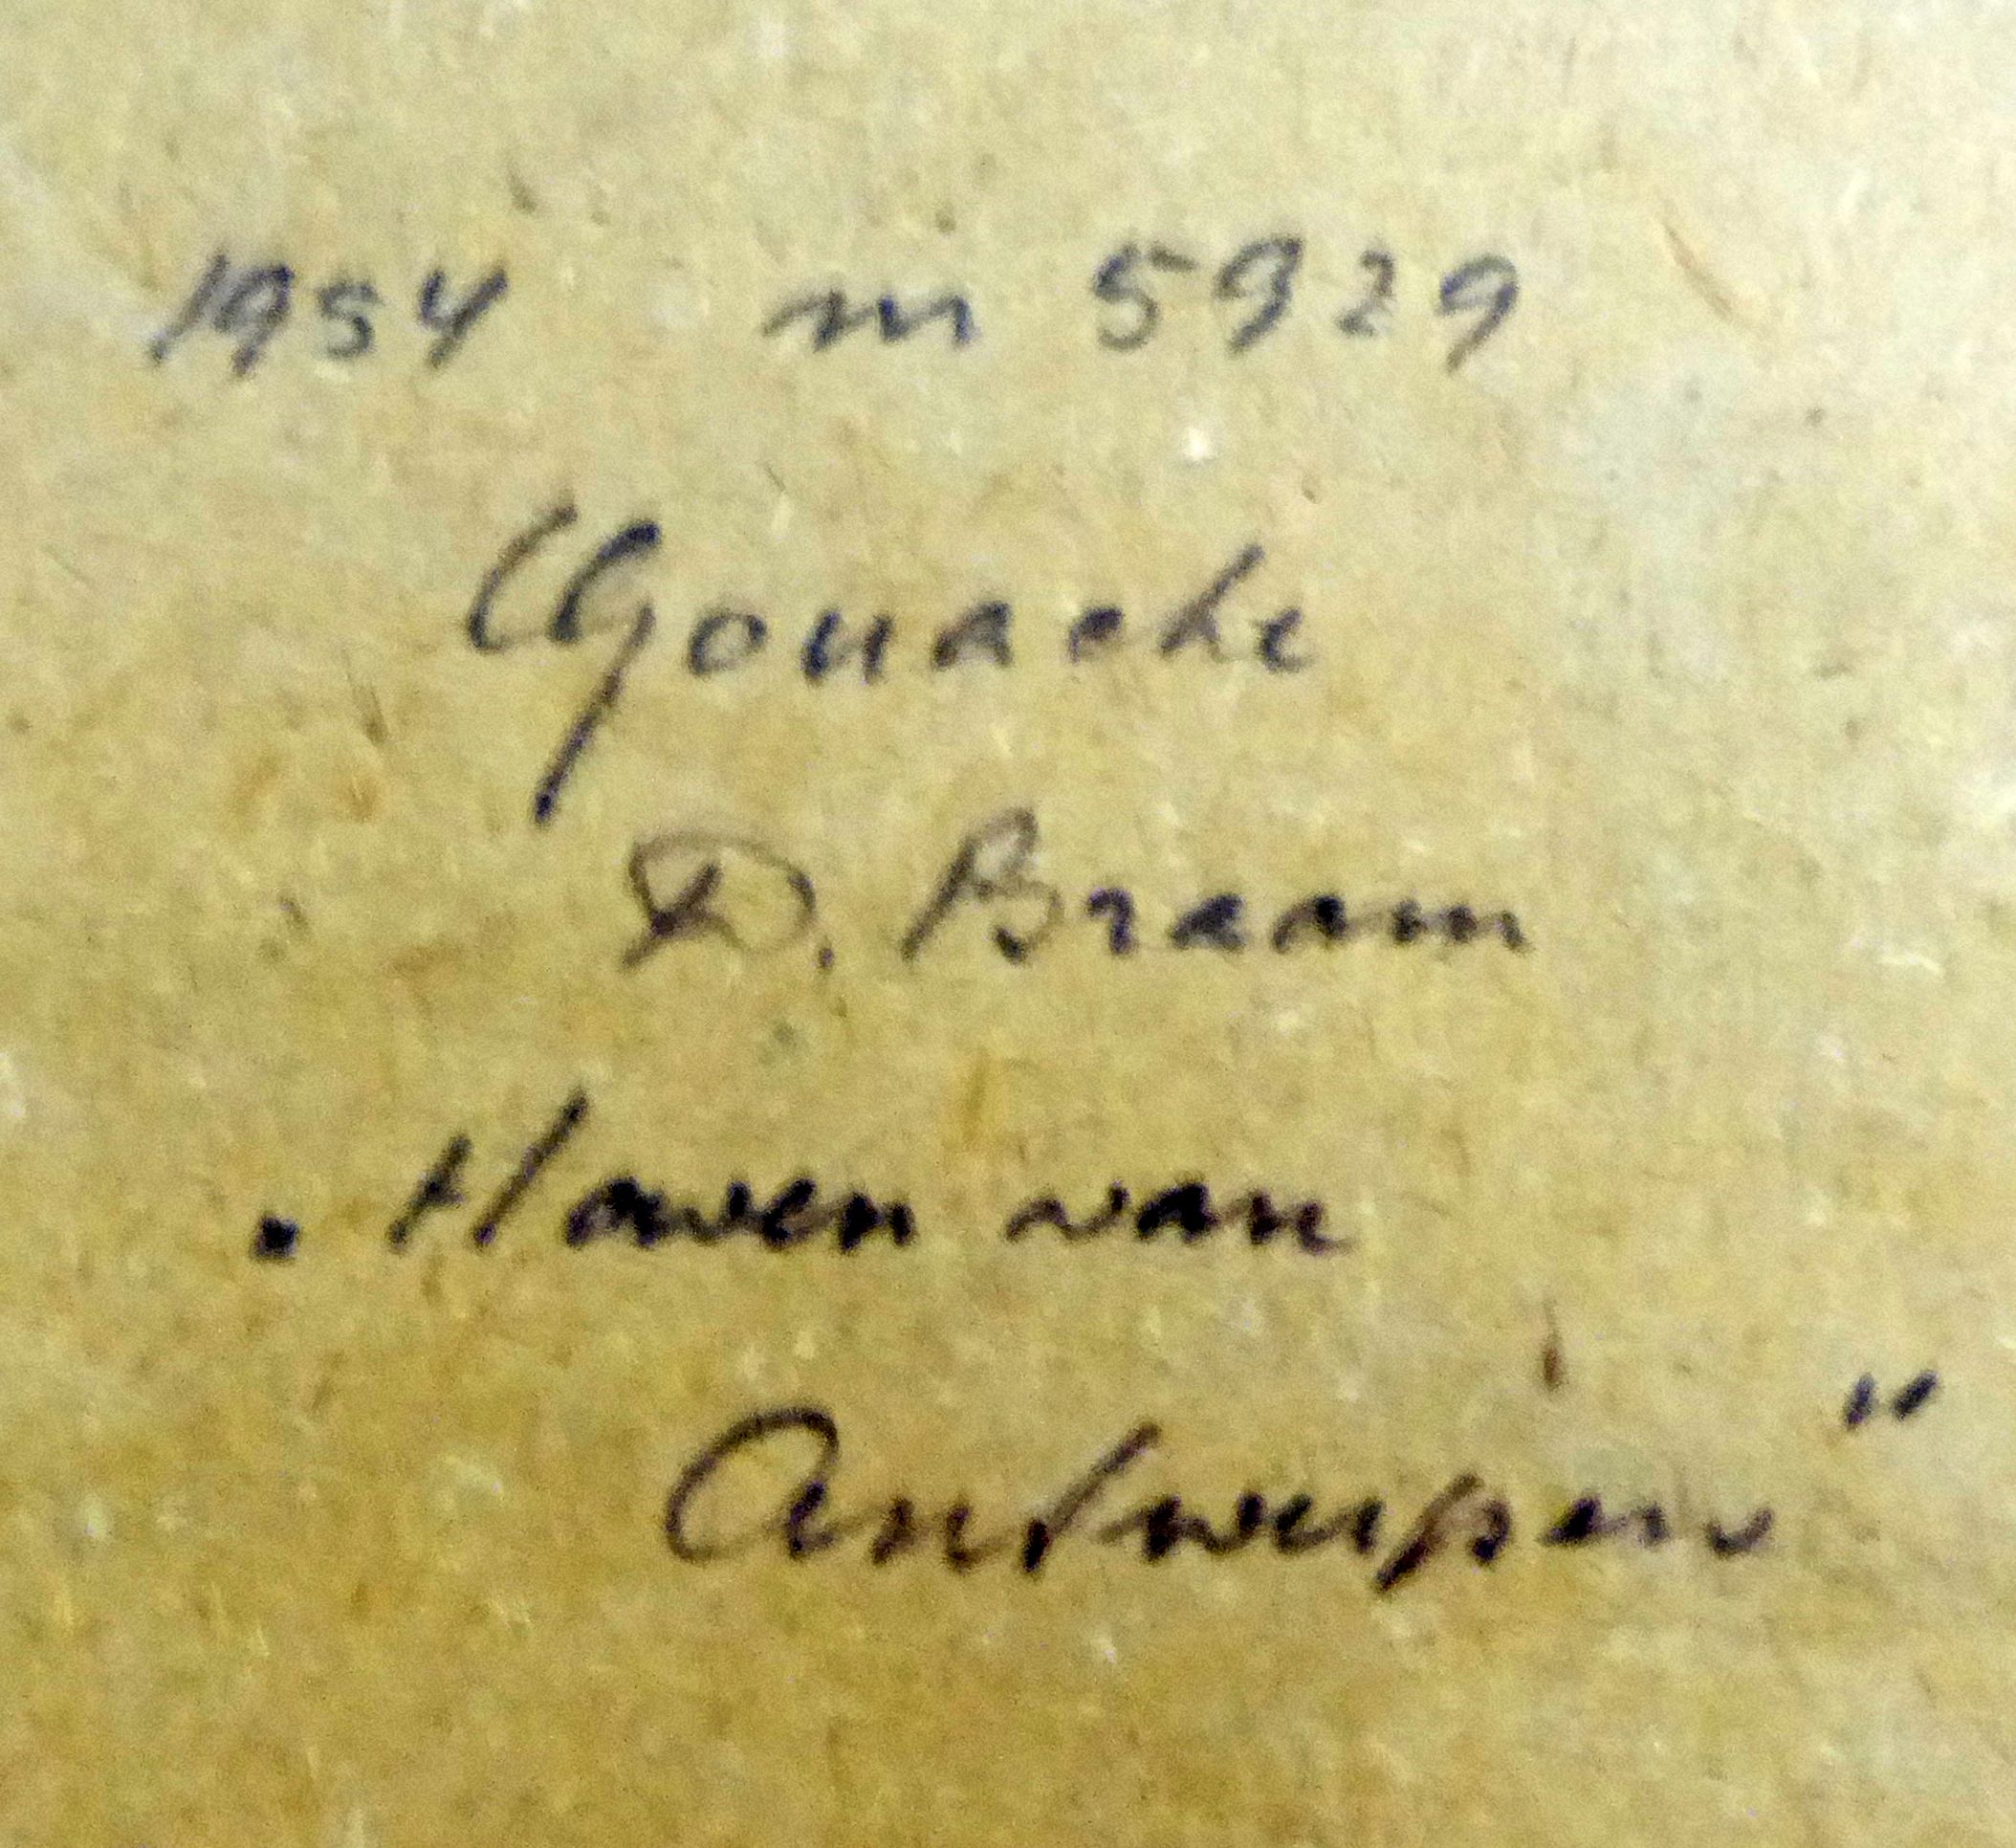 1954 m 5929
Gouache
D. Braam
"Haven van
Antwerpen"